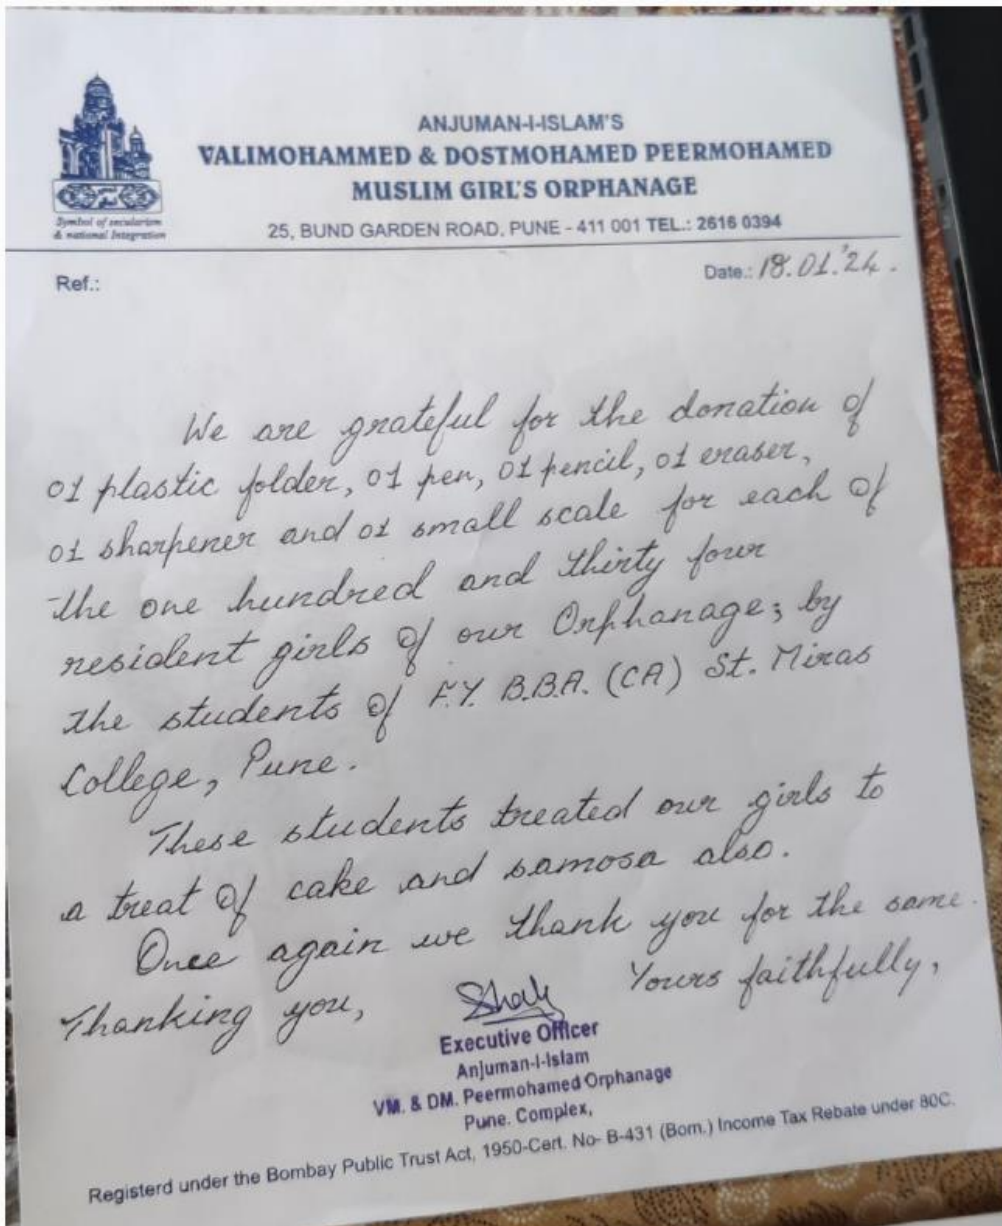 ANJUMAN-I-ISLAM'S
VALIMOHAMMED & DOSTMOHAMED PEERMOHAMED
MUSLIM GIRL'S ORPHANAGE
25, BUND GARDEN ROAD, PUNE - 411 001 TEL.: 2616 0394
Symbol of secularism
& national Integration
Ref.:
Date.: 18.01.'24.
We are grateful for the donation of
01 plastic folder, 01 pen, 01 pencil, 01 eraser,
01 sharpener and 01 small scale for each of
the one hundred and thirty four
resident girls of our Orphanage; by
the students of F.Y. B.B.A. (CA) St. Miras
College, Pune.
These students treated our girls to
a treat of cake and samosa also.
Once again we thank you for the same.
Thanking you,
Yours faithfully,
Executive Officer
Anjuman-I-Islam
VM. & DM. Peermohamed Orphanage
Pune. Complex,
Registerd under the Bombay Public Trust Act, 1950-Cert. No- B-431 (Bom.) Income Tax Rebate under 80C.